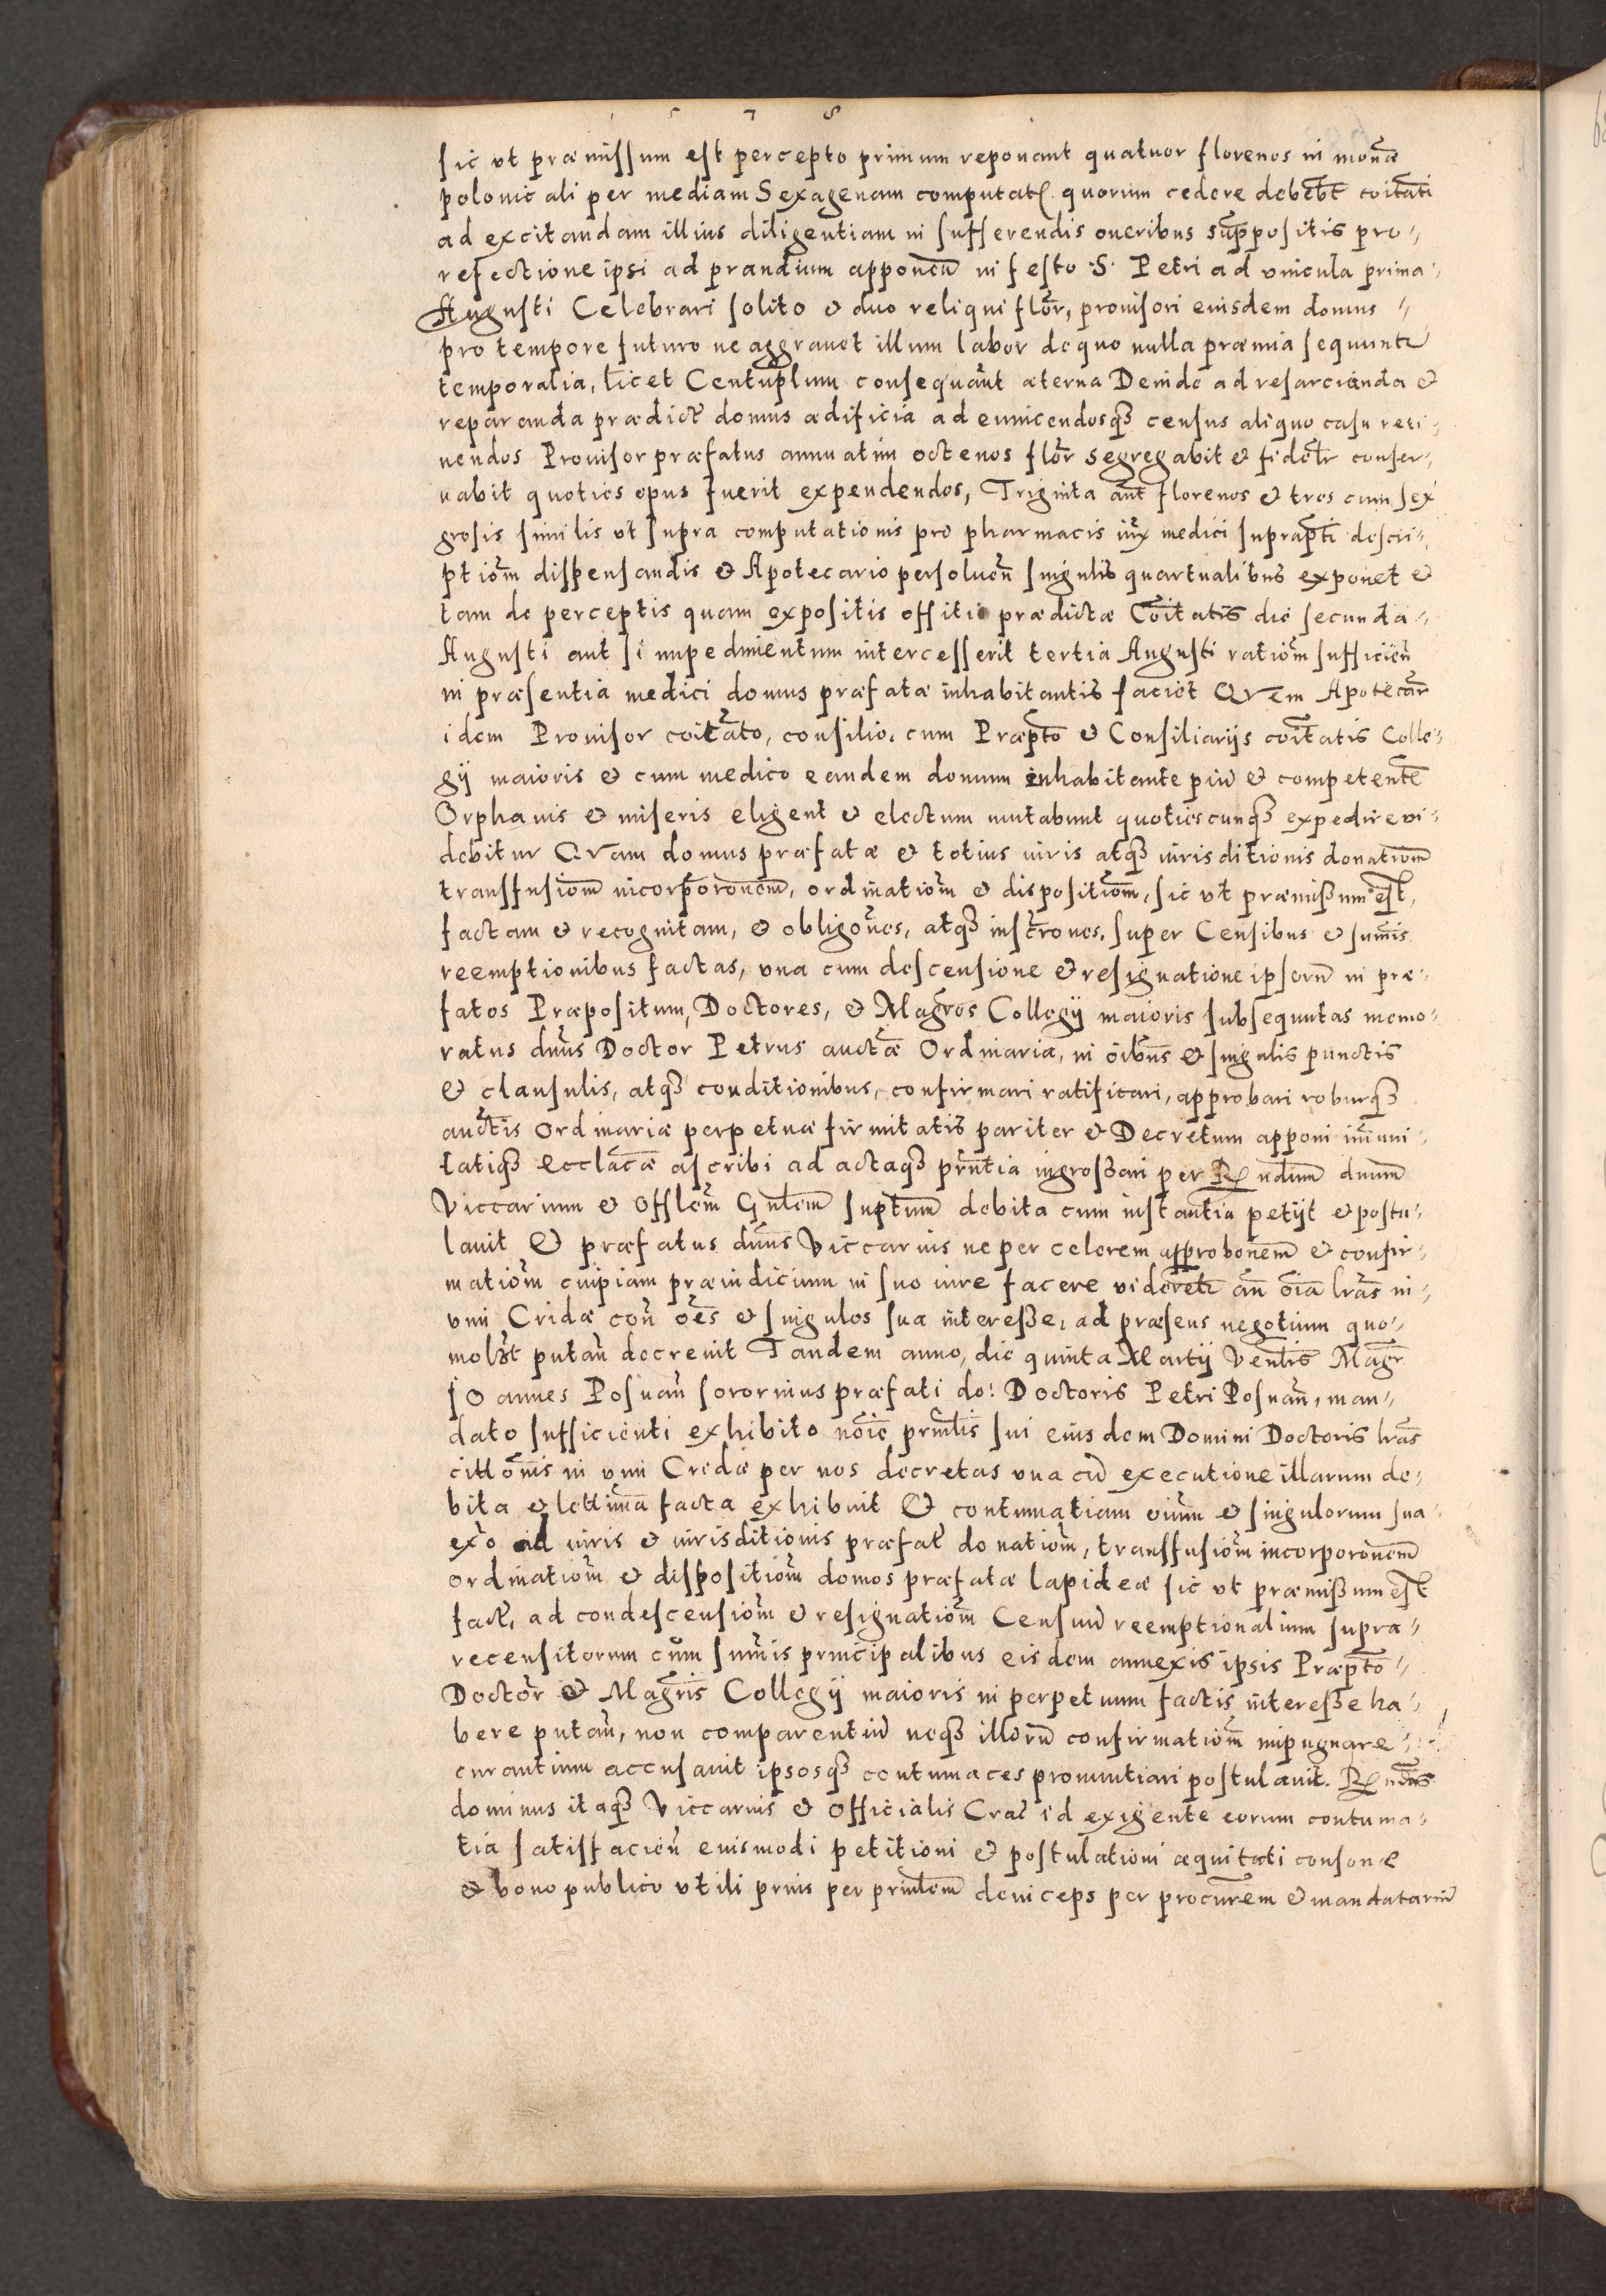 1 5 7 8
sic vt præmissum est percepto primum reponant quatuor florenos in monæ
polonicali per mediam Sexagenam computat. quorum cedere debebt coitati
ad excitandam illius diligentiam in sufferendis oneribus suppositis pro
refectione ipsi ad prandium apponen in festo S. Petri ad vincula prima
Augusti Celebrari solito & duo reliqui flor, prouisori eiusdem domus
pro tempore futuro ne aggrauet illum labor de quo nulla præmia sequunt
temporalia, licet Centuplum consequant æterna Deinde ad resarcienda &
reparanda prædict domus ædificia ad euincendosq census aliquo casu reti
nendos Prouisor præfatus annuatim octenos flor segregabit & fidelr conser
uabit quoties opus fuerit expendendos, Triginta aut florenos & tres cum sex
grosis similis vt supra computationis pro pharmacis iux medici suprapti descri
ptiom dispensandis & Apotecario persoluen singulis quartualibus exponet &
tam de perceptis quam expositis offitio prædictæ Coitatis die secunda
Augusti aut si impedimentum intercesserit tertia Augusti ratiom sufficien
in præsentia medici domus præfatæ inhabitantis faciet Qrem Apotecar
idem Prouisor coicato, consilio, cum Præpto & Consiliarijs coitatis Colle
gij maioris & cum medico eandem domum inhabitante piu & competente
Orphanis & miseris eligent & electum mutabunt quotiescunq expedire vi
debitur Qram domus præfatæ & totius iuris atq iurisditionis donatiom
transfusiom incorporonem, ordinatiom & dispositiom, sic vt præmissum est,
factam & recognitam, & obligones, atq inscrones, super Censibus & sumis
reemptionibus factas, vna cum descensione & resignatione ipsorum in præ
fatos Præpositum, Doctores, & Magros Collegij maioris subsequutas memo
ratus dnus Doctor Petrus auctæ Ordinaria, in oibus & singulis punctis
& clausulis, atq conditionibus, confirmari ratificari, approbari roburq
auctis Ordinariæ perpetuæ firmitatis pariter & Decretum apponi imuni
tatiq Ecclacæ ascribi ad actaq prntia ingrossari per R ndum dnum
Viccarium & Offlem Gnlem suptum debita cum instantia petijt & postu
lauit & præfatus dnus Viccarius ne per celerem approbonem & confir
matiom cuipiam præiudicium in suo iure facere videret an oia lras in
vim Cridæ con oes & singulos sua interesse, ad præsens negotium quo
molbt putan decreuit Tandem anno, die quinta Martij Venlis Magr
Joannes Posnan sororinus præfati do: Doctoris Petri Posnan, man
dato sufficienti exhibito noie prinlis sui eiusdem Domini Doctoris lras
cittonis in vim Cridæ per nos decretas vna cu executione illarum de
bita & lettima facta exhibuit & contumatiam oium & singulorum sua
exo ad iuris & iurisditionis præfat donatiom, transfusiom incorporonem
ordinatiom & dispositiom domos præfatæ lapideæ sic vt præmissum est
fact, ad condescensiom & resignatiom Censuu reemptionalium supra
recensitorum cum sumis principalibus eisdem annexis ipsis Præpto
Doctor & Magris Collegij maioris in perpetuum factis interesse ha
bere putan, non comparentiu neq illoru confirmatiom impugnare
curantium accusauit ipsosq contumaces pronuntiari postulauit. R ndus
dominus itaq Viccarius & Officialis Crac id exigente eorum contuma
tia satisfacien eiusmodi petitioni & postulationi æquitati consonæ
& bono publico vtili prius per prinlem deinceps per procurem & mandatariu